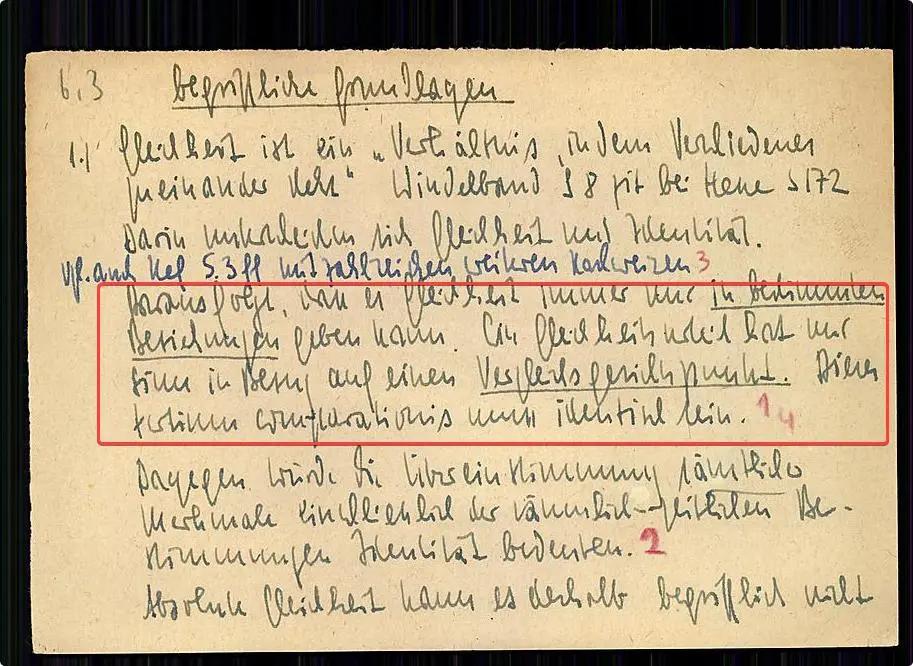 6,3 begriffliche Grundlagen
1.) Gleichheit ist ein „Verhältnis, in dem Verschiedenes
zueinander steht" Windelband S 8 zit bei Nene S 172
Darin unterscheiden sich Gleichheit und Identität.
vgl. auch Nef S. 3 ff mit zahlreichen weiteren Nachweisen 3
Daraus folgt, dass es Gleichheit immer nur in bestimmten
Beziehungen geben kann. Ein Gleichheitsurteil hat nur
Sinn in Bezug auf einen Vergleichsgesichtspunkt. Dieses
tertium comparationis muss identisch sein. 1 4
Dagegen würde die Übereinstimmung sämtlicher
Merkmale einschliesslich der räumlich-zeitlichen Be-
stimmungen Identität bedeuten. 2
Absolute Gleichheit kann es deshalb begrifflich nicht